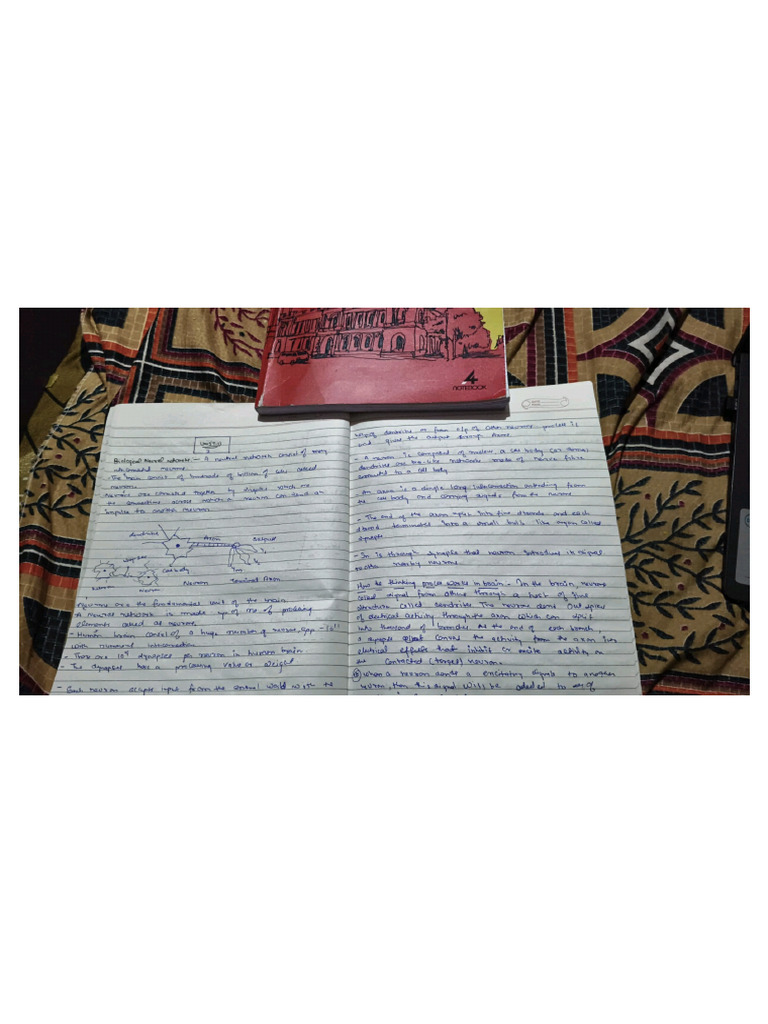 4
NOTEBOOK
Biological Neural Network:- A neural network consist of many
interconnected neurons.
- The brain consist of hundreds of billion of cells called
neurons.
Neurons are connected together by synapses which are
the connections across which a neuron can send an
impulse to another neuron.
Axon
Output
Cell body
Neuron
Neuron
Neuron
Terminal Axon
Neurons are the fundamental unit of the brain.
A neural network is made up of no of processing
elements called as neurons.
- Human brain consist of a huge number of neurons, app - 10¹¹
with numerous interconnection.
- There are 10⁴ synapses per neuron in human brain
- The synapses has a processing value or weight
- Each neuron accepts input from the external world with the
help of dendrite or from o/p of other neurons, process it
and gives the output through Axon.
- A neuron is composed of nucleus, a cell body
dendrites are tree like networks made of nerve fibre
connected to a cell body
- An axon is a single long interconnection extending from
the cell body and carrying signals from the neuron
- The end of the axon splits into fine strands and each
strand terminates into a small bulb like organ called
synapse
- It is through synapse that neuron introduces its signal
to other nearby neurons.
How the thinking process works in brain - In the brain, neurons
collect signal from others through a host of fine
structure called dendrite. The neurons sends out spikes
of electrical activity through the axon which can split
into thousand of branches. At the end of each branch,
a synapse converts the activity from the axon into
electrical effects that inhibit or excite activity in
the contacted (target) neuron.
When a neuron sends a excitatory signals to another
neuron, then this signal will be added to of